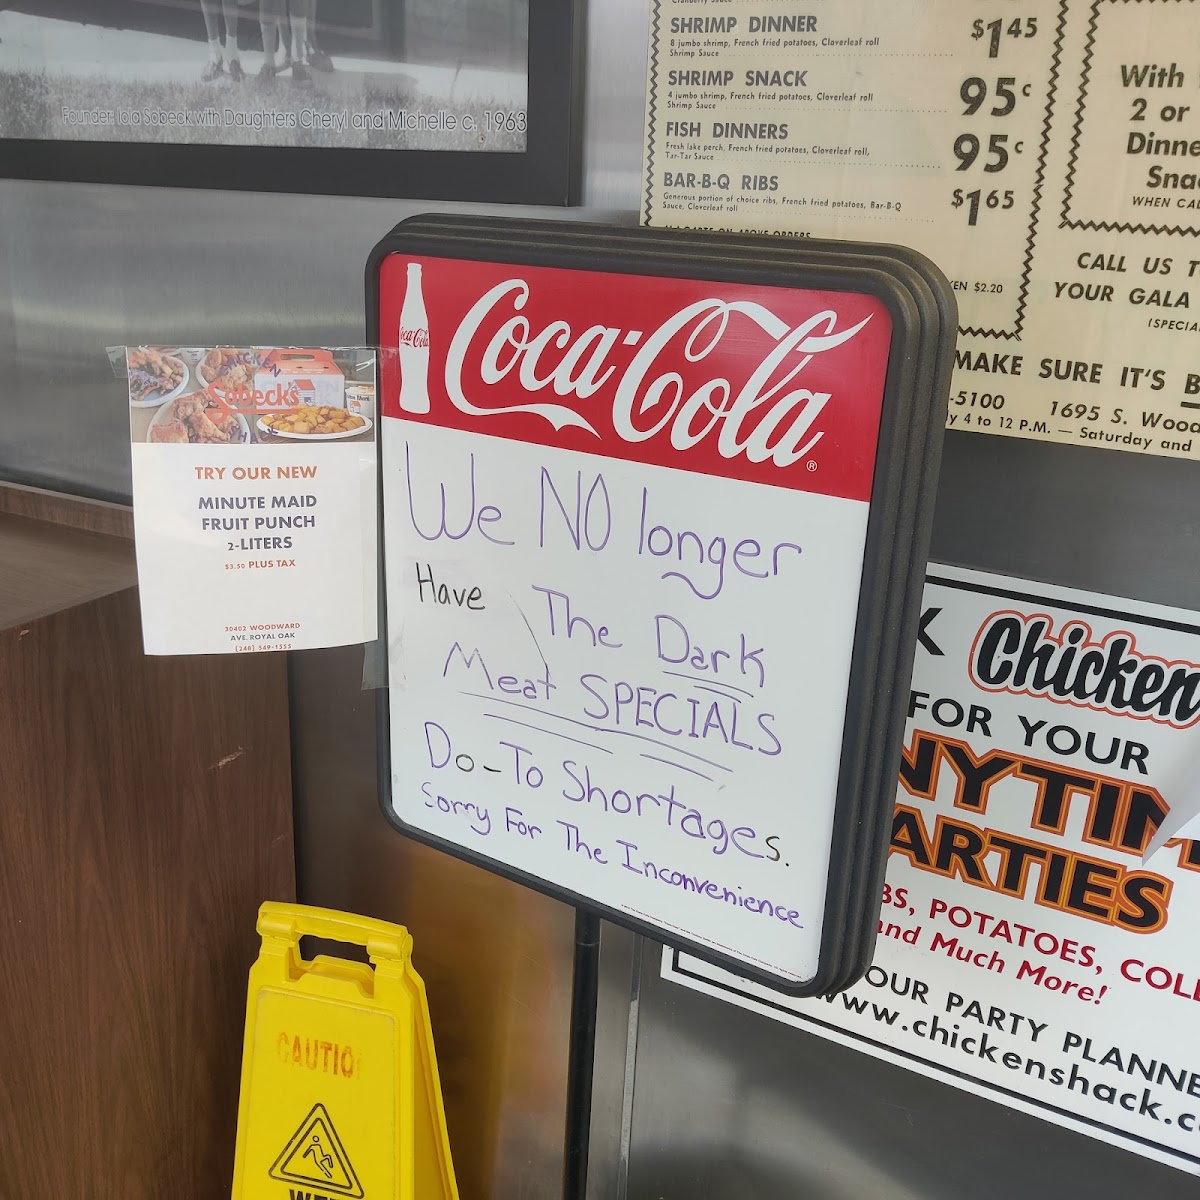 Founder: Iola Sobeck with Daughters Cheryl and Michelle c. 1963
Cranberry Sauce
SHRIMP DINNER $1.45
8 jumbo shrimp, French fried potatoes, Cloverleaf roll
Shrimp Sauce
SHRIMP SNACK 95c
4 jumbo shrimp, French fried potatoes, Cloverleaf roll
Shrimp Sauce
FISH DINNERS 95c
Fresh lake perch, French fried potatoes, Cloverleaf roll,
Tar-Tar Sauce
BAR-B-Q RIBS $1.65
Generous portion of choice ribs, French fried potatoes, Bar-B-Q
Sauce, Cloverleaf roll
$2.20
With
2 or
WHEN
CALL US
YOUR GALA
MAKE SURE IT'S
-5100 1695 S.
4 to 12 P.M. — Saturday and
Coca-Cola
Coca-Cola®
We NO longer
Have The Dark
Meat SPECIALS
Do-To Shortages.
Sorry For The Inconvenience
CHICKEN
Sobeck's
SHACK
TRY OUR NEW
MINUTE MAID
FRUIT PUNCH
2-LITERS
$3.50 PLUS TAX
30403 WOODWARD
AVE. ROYAL OAK
(248) 549-1555
Chicken
FOR YOUR
POTATOES,
and Much More!
OUR PARTY
www.chickenshack.c
CAUTIO